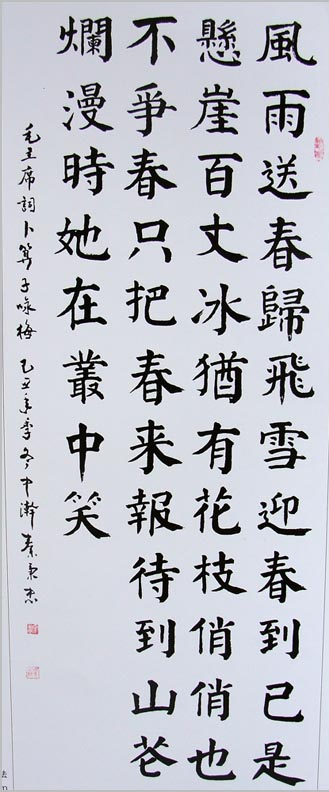 風雨送春歸飛雪迎春到已是
懸崖百丈冰猶有花枝俏俏也
不爭春只把春来報待到山花
爛漫時她在叢中笑
毛主席詞卜算子咏梅 乙丑年季冬中澣秦